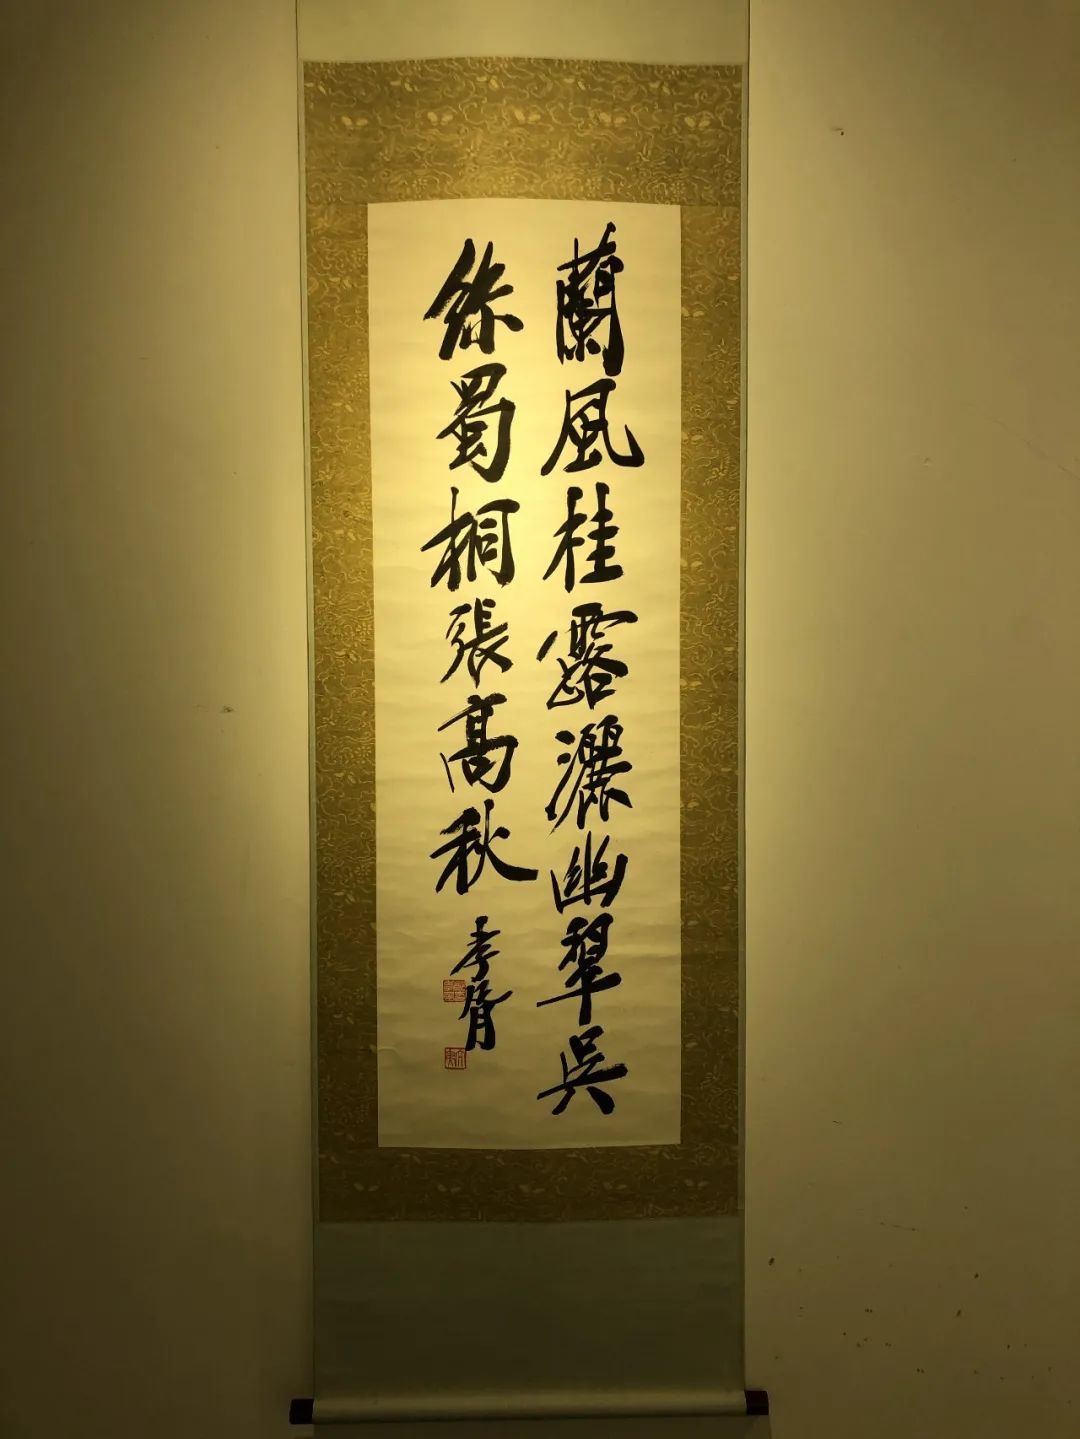 蘭風桂露灑幽翠吳
絲蜀桐張高秋
季